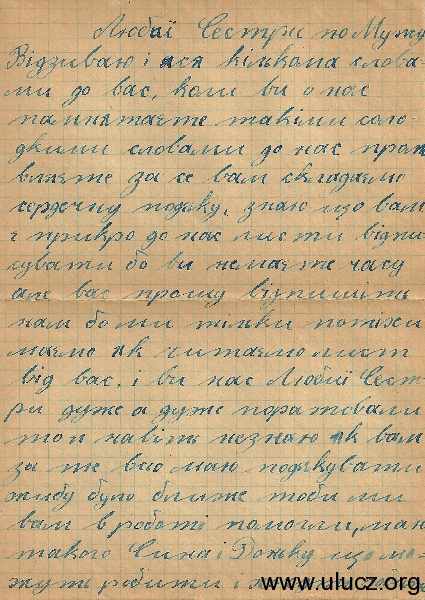 Любої Сестри по Мужу
Відзиваю і ися кількома слова-
ми до вас, коли ви о нас
памнятаєте такіми соло-
дкими словами до нас
вляєте за се вам складаємо
сердечну подяку, знаю що вам
є прикро до нас листи відпи-
сувати бо ви немаєте часу
але вас прошу відпишіть
нам бо ми тілки потіхи
маємо як читаємо лист
від вас, і ви нас Любиї Сест-
ри дуже а дуже поратовали
то я навіть незнаю як вам
за те все маю подякувати
жибу було ближе тоби ми
вам в роботі помогли, маю
такого Сина і Доньку що мо-
жуть робити і
www.ulucz.org